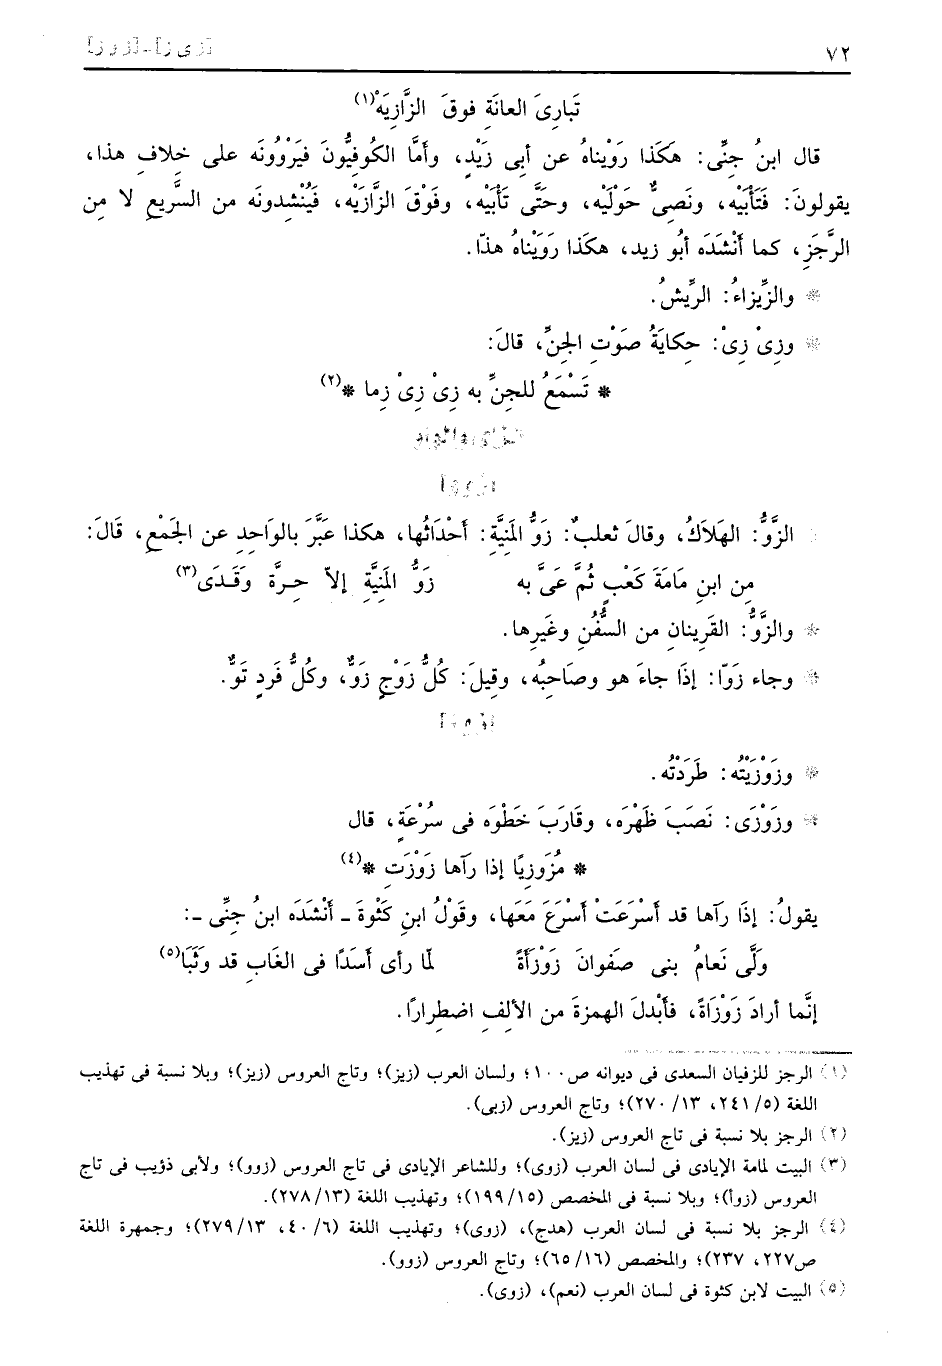 ٧٢ [ز ى ز] ـ [ز و ز]
تَبارِىَ العانَةِ فوقَ الزَّازِيَهْ(١)
قال ابنُ جنِّى: هَكَذا رَوَيْناهُ عن أبى زَيْدٍ، وأمَّا الكُوفيُّونَ فيَرْوُونَه على خلافِ هذا،
يقولونَ: فَتَأْبَيْه، ونَصِىٌّ حَوْلَيْه، وحَتَّى تَأْبَيْه، وفَوْقَ الزَّازَيْه، فَيُنْشِدونَه من السَّريعِ لا من
الرَّجَزِ، كما أنْشَدَه أبُو زيد، هكَذا رَوَيْناهُ هذَا.
* والزِّيزاءُ: الرِّيشُ.
* وزِىْ زِىْ: حِكايَةُ صَوْتِ الجِنِّ، قالَ:
* تَسْمَعُ للجِنِّ به زِىْ زِىْ زِما *(٢)
الزَّوُّ: الهَلاَكُ، وقالَ ثعلبٌ: زَوُّ المَنِيَّةِ: أحْدَاثُها، هكذا عَبَّرَ بالوَاحِدِ عن الجَمْعِ، قَالَ:
مِن ابنِ مَامَةَ كَعْبٍ ثُمَّ عَىَّ به زَوُّ المَنِيَّةِ إلاّ حِرَّة وَقَدَى(٣)
* والزَّوُّ: القَرِينانِ من السُّفُنِ وغَيرِها.
* وجاء زَوّا: إذَا جاءَ هو وصَاحِبُه، وقيلَ: كُلُّ زَوْجٍ زَوٌّ، وكُلُّ فَردٍ تَوٌّ.
* وزَوْزَيْتُه: طَرَدْتُه.
* وزَوْزَى: نَصَبَ ظَهْرَه، وقَارَبَ خَطْوَه فى سُرْعَةٍ، قال
* مُزَوزِيًا إذا رَآها زَوْزَت *(٤)
يقولُ: إذَا رَآها قد أسْرَعَتْ أسْرَعَ مَعَها، وقَوْلُ ابنِ كَثْوةَ ـ أنْشَدَه ابنُ جنِّى ـ:
ولَّى نَعامُ بنى صَفوانَ زَوْزَأةً لمّا رأى أسَدًا فى الغَابِ قد وَثَبَا(٥)
إنَّما أرادَ زَوْزَاةً، فأبْدلَ الهمزةَ من الألفِ اضطرارًا.
(١) الرجز للزفيان السعدى فى ديوانه ص١٠٠؛ ولسان العرب (زيز)؛ وتاج العروس (زيز)؛ وبلا نسبة فى تهذيب
اللغة (٢٤١/٥، ٢٧٠/١٣)؛ وتاج العروس (زبى).
(٢) الرجز بلا نسبة فى تاج العروس (زيز).
(٣) البيت لمامة الإيادى فى لسان العرب (زوى)؛ وللشاعر الإيادى فى تاج العروس (زوو)؛ ولأبى ذؤيب فى تاج
العروس (زوأ)؛ وبلا نسبة فى المخصص (١٩٩/١٥)؛ وتهذيب اللغة (٢٧٨/١٣).
(٤) الرجز بلا نسبة فى لسان العرب (هدج)، (زوى)؛ وتهذيب اللغة (٤٠/٦، ٢٧٩/١٣)؛ وجمهرة اللغة
ص٢٢٧، ٢٣٧)؛ والمخصص (٦٥/١٦)؛ وتاج العروس (زوو).
(٥) البيت لابن كثوة فى لسان العرب (نعم)، (زوى).